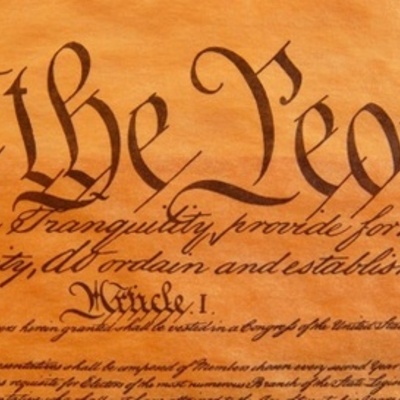 the Peo
Tranquility, provide for
ty, do ordain and establis
Article. I.
herein granted shall be vested in a Congress of the United Stat
shall be composed of Members chosen every second Year
requisite for Electors of the most numerous Branch of the State Legis